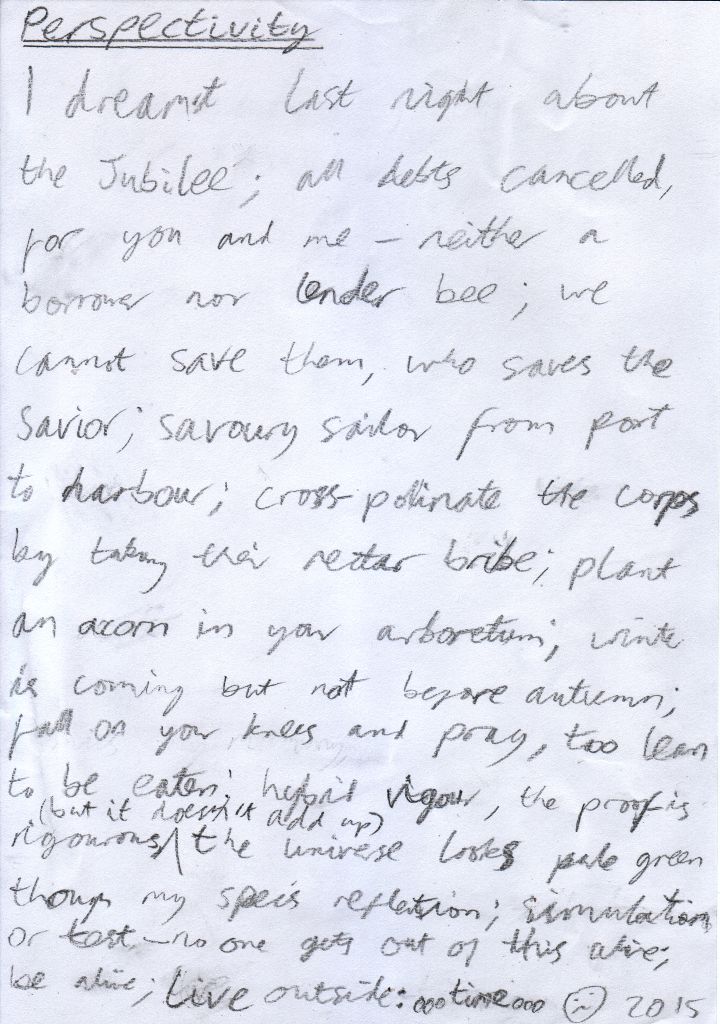 Perspectivity
I dreamt last night about
the Jubilee; all debts cancelled,
for you and me – neither a
borrower nor lender bee; we
cannot save them, who saves the
Savior; savoury sailor from port
to harbour; cross-polinate the corps
by taking their nectar bribe; plant
an acorn in your arboretum; winter
is coming but not before autumn;
fall on your knees and pray, too lean
to be eaten; hybrid vigour, the proof is
(but it doesn't add up)
rigourous / the universe looks pale green
though my spec's reflection; simulation
or test – no one gets out of this alive;
be alive; Live outside: ooo time ooo 2015